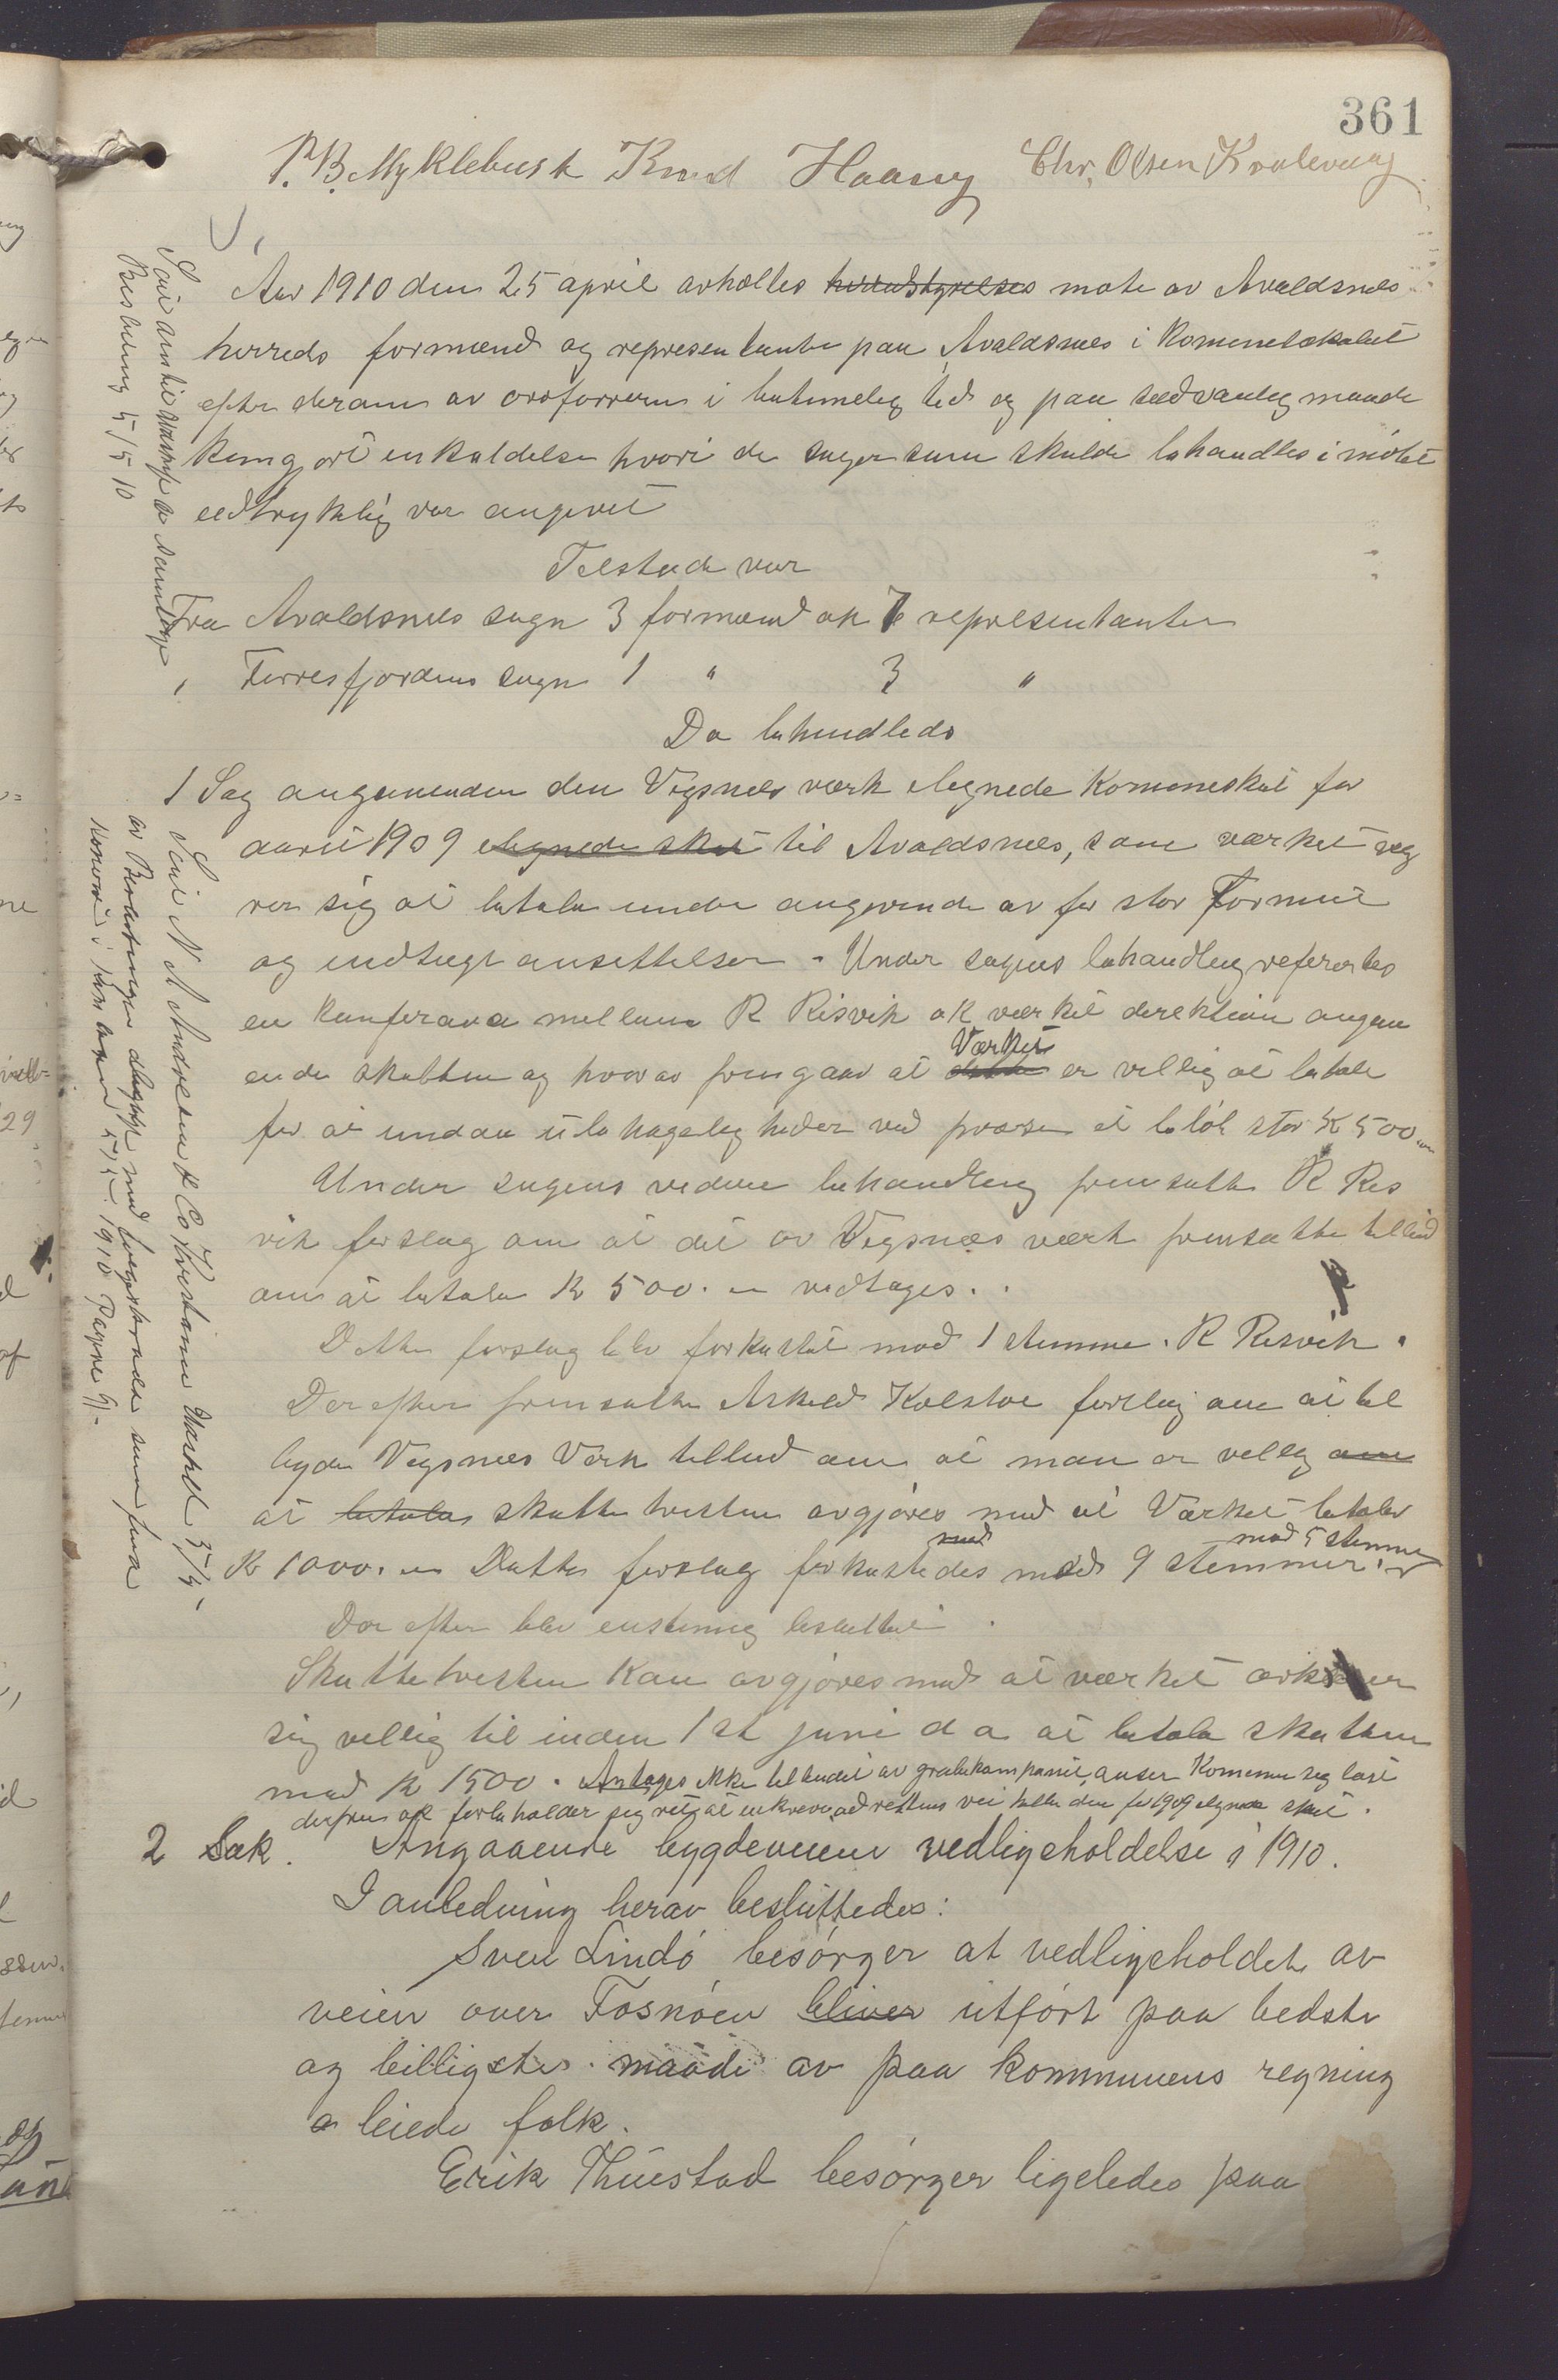 361
P. B. Myklebust Knud Haaeng Chr. Olsen Kvalevaag
Aar 1910 den 25 april avholtes herredstyrelses møte av Avaldsnes
herreds formænd og representanter paa Avaldsnes i Komunelokalet
efter derom av ordføreren i betimelig tid og paa sedvanlig maade
kungjort inkaldelse hvori de sager som skulde behandles i møtet
udtrykkelig var angivet
Tilstede var
Fra Avaldsnes sogn 3 formænd ok 7 representanter
" Førresfjordens sogn 1 " 3 "
Da behandledes
1 Sag angaaende den Vigsnes værk ilignede Komuneskat for
aaret 1909 ilignede skat til Avaldsnes, som værket veg
rer sig at betale under angivende av for stor Formue
og indtægt ansettelser. Under sagens behandling refereertes
en konferanse mellem R Risvik ok værket direktion angaa
ende skatten og hvorav fremgaar at dette Værket er villig at betale
for at undaa ubehageligheder ved process et beløb stor K 500
Under sagens videre behandling fremsatte R Ris
vik forslag om at det av Vigsnæs værk fremsatte tilbud
om at betale K 500. " vedtages.
Dette forslag blev forkastet mod 1 stemme. R Risvik.
Derefter fremsatte Askild Kolstøe forslag om at til
byde Vigsnes Værk tilbud om at man er villig om
at betale skatte tvisten avgjøres med at Værket betaler
Kr 1000. " Dette forslag forkastedes med med 9 stemmer. mod 5 stemmer
Derefter blev enstemmig besluttet
Skattetvisten kan avgjøres med at værket erklærer
sig villig til inden 1st juni d a at betale skatten
med K 1500. Antages ikke tilbudet av grubekompaniet, anser Komunen seg løst
derfra ok forbeholder sig ret at inkreve ad rettens vei hele den for 1909 ilignede skat.
2 Sak. Angaaende bygdeveiene vedligeholdelse i 1910.
I anledning herav besluttedes:
Sven Lindö besörger at vedligeholdet av
veien over Fosnöen bliver utfört paa bedste
og billigste maade av paa kommunens regning
leiede folk.
Erik Thuestad besörger ligeledes paa
Beslutning 5/5 10
Sent N Andresen & Co Kristiania Utskrift 5/5